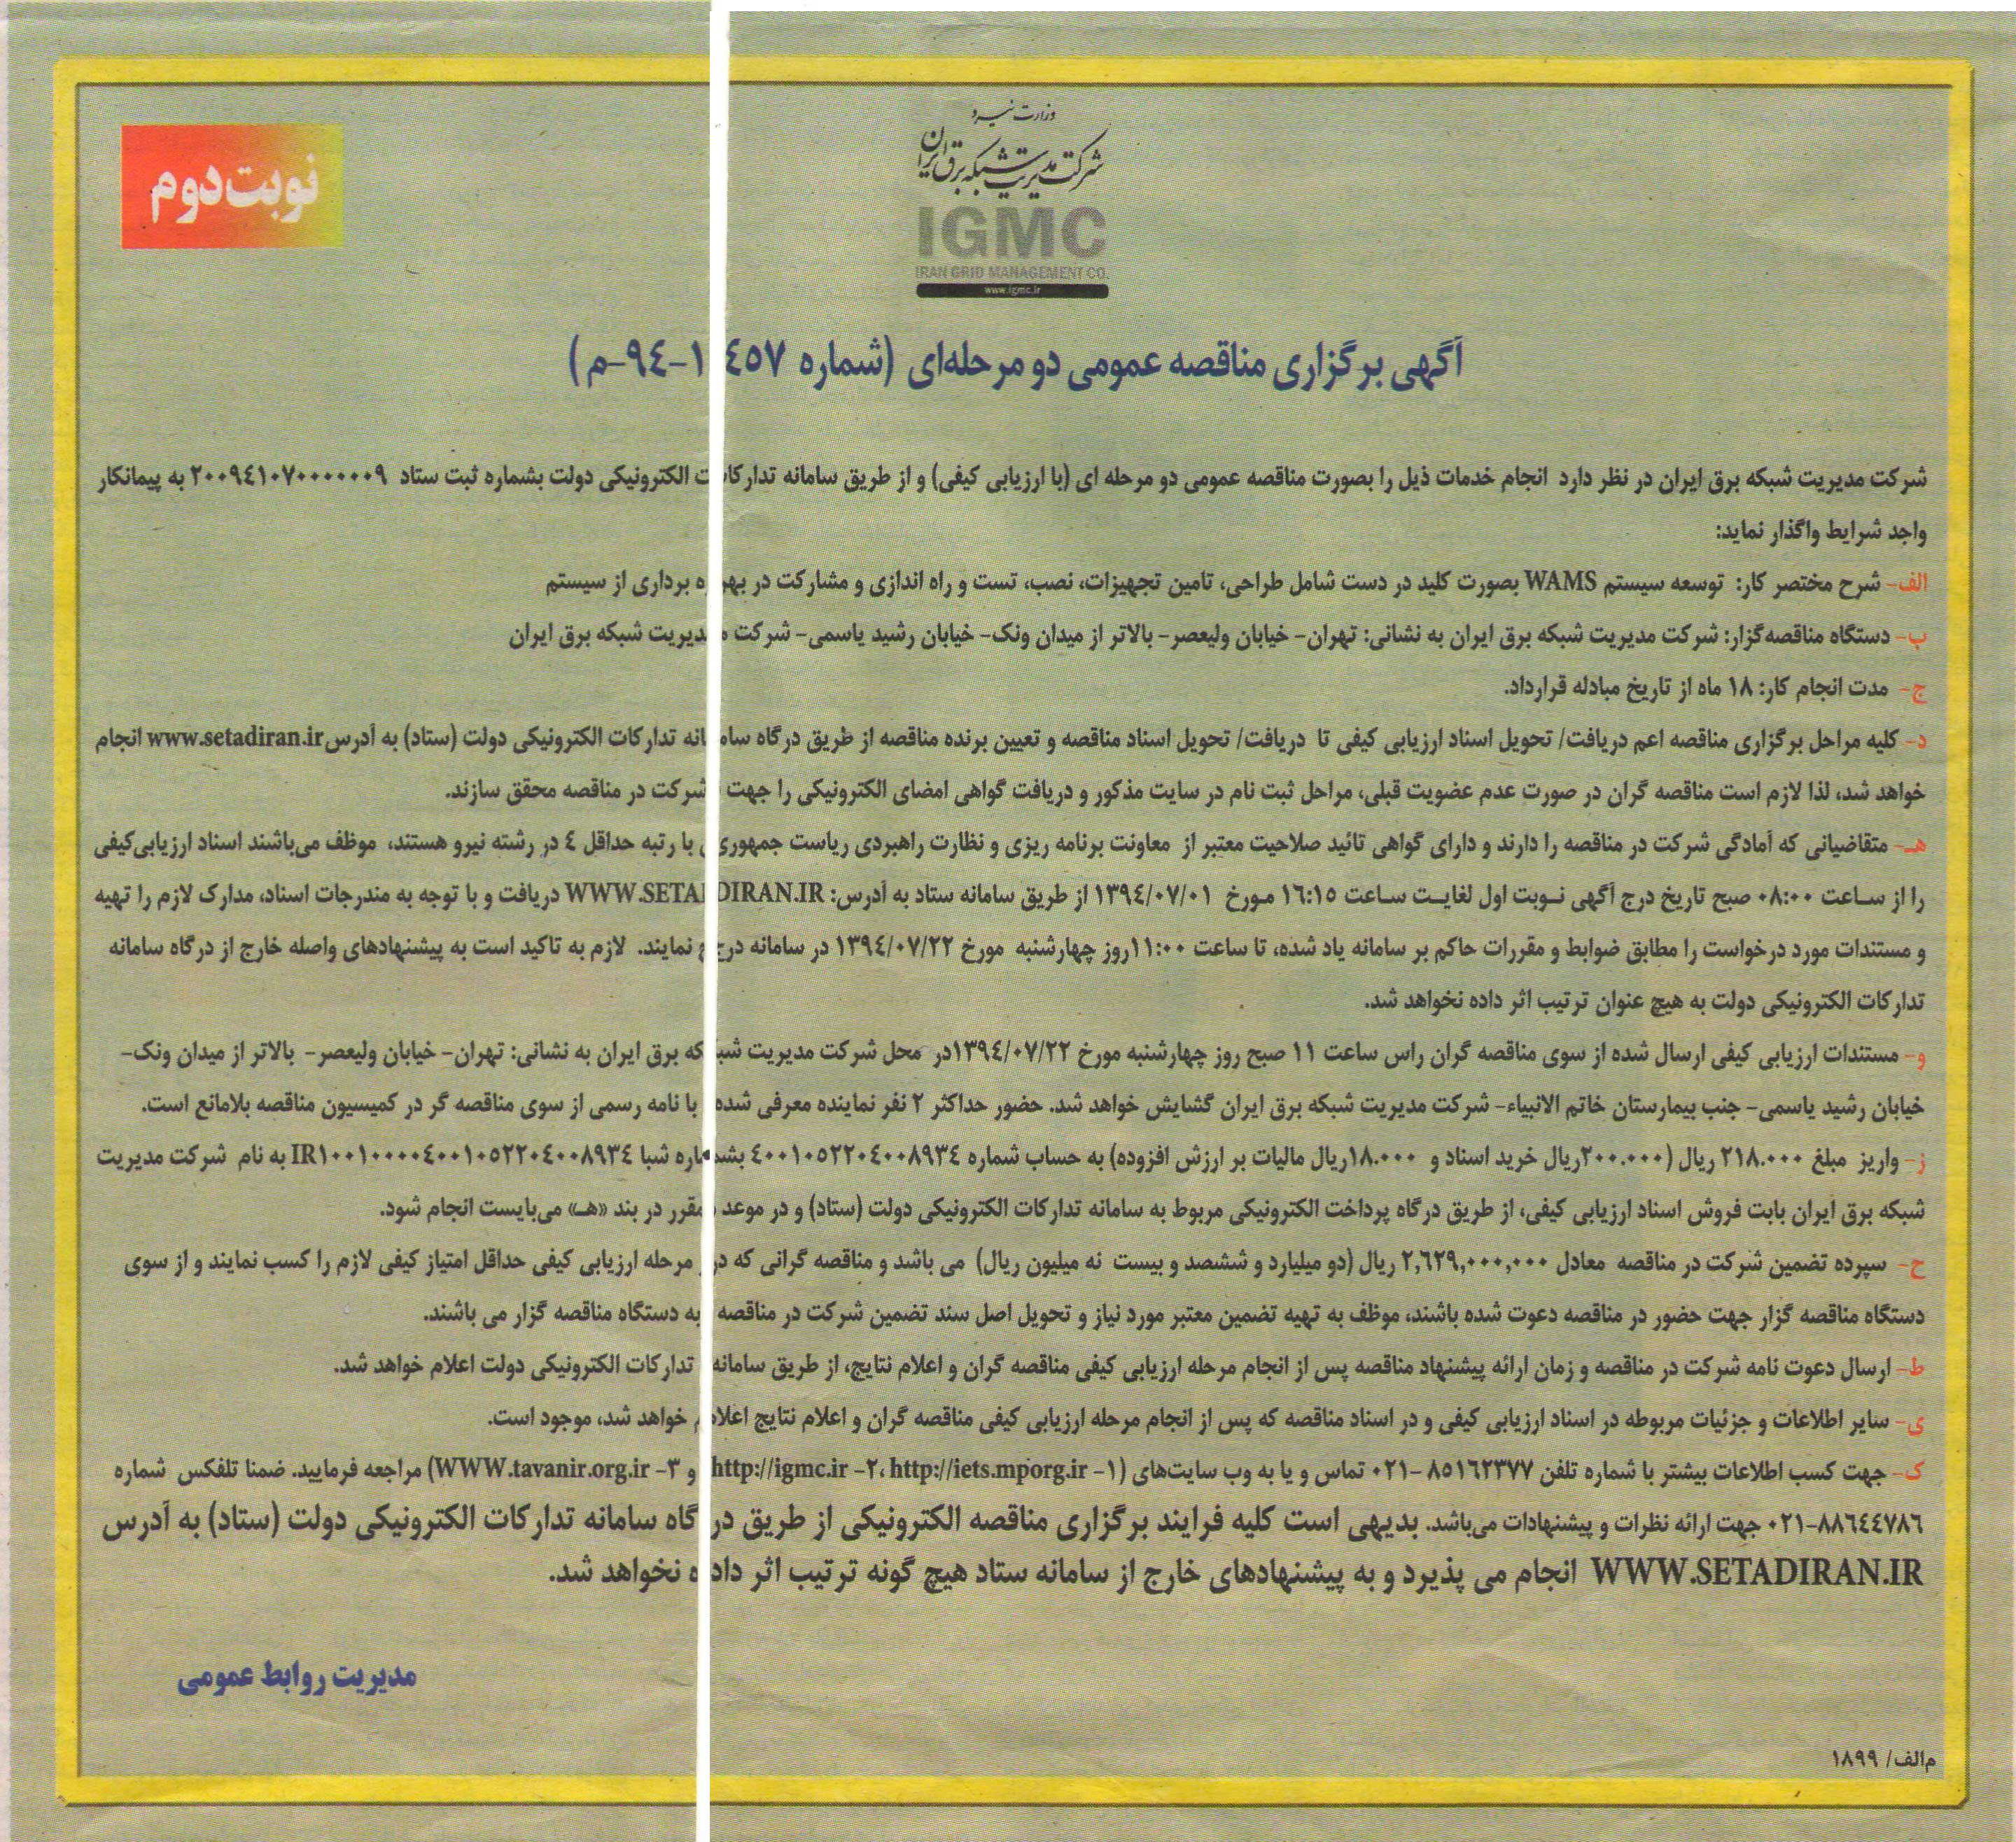 وزارت نیرو
شرکت مدیریت شبکه برق ایران
IGMC
IRAN GRID MANAGEMENT CO.
www.igmc.ir
نوبت دوم
آگهی برگزاری مناقصه عمومی دو مرحله‌ای (شماره ۴۵۷ ۱-۹۴-م)
شرکت مدیریت شبکه برق ایران در نظر دارد انجام خدمات ذیل را بصورت مناقصه عمومی دو مرحله ای (با ارزیابی کیفی) و از طریق سامانه تدارکات الکترونیکی دولت بشماره ثبت ستاد ۲۰۰۹۴۱۰۷۰۰۰۰۰۰۹ به پیمانکار
واجد شرایط واگذار نماید:
الف- شرح مختصر کار: توسعه سیستم WAMS بصورت کلید در دست شامل طراحی، تامین تجهیزات، نصب، تست و راه اندازی و مشارکت در بهره برداری از سیستم
ب- دستگاه مناقصه‌گزار: شرکت مدیریت شبکه برق ایران به نشانی: تهران- خیابان ولیعصر- بالاتر از میدان ونک- خیابان رشید یاسمی- شرکت مدیریت شبکه برق ایران
ج- مدت انجام کار: ۱۸ ماه از تاریخ مبادله قرارداد.
د- کلیه مراحل برگزاری مناقصه اعم دریافت/ تحویل اسناد ارزیابی کیفی تا دریافت/ تحویل اسناد مناقصه و تعیین برنده مناقصه از طریق درگاه سامانه تدارکات الکترونیکی دولت (ستاد) به آدرس www.setadiran.ir انجام
خواهد شد، لذا لازم است مناقصه گران در صورت عدم عضویت قبلی، مراحل ثبت نام در سایت مذکور و دریافت گواهی امضای الکترونیکی را جهت شرکت در مناقصه محقق سازند.
هـ- متقاضیانی که آمادگی شرکت در مناقصه را دارند و دارای گواهی تائید صلاحیت معتبر از معاونت برنامه ریزی و نظارت راهبردی ریاست جمهوری با رتبه حداقل ۴ در رشته نیرو هستند، موظف می‌باشند اسناد ارزیابی‌کیفی
را از ساعت ۰۸:۰۰ صبح تاریخ درج آگهی نوبت اول لغایت ساعت ۱۶:۱۵ مورخ ۱۳۹۴/۰۷/۰۱ از طریق سامانه ستاد به آدرس: WWW.SETADIRAN.IR دریافت و با توجه به مندرجات اسناد، مدارک لازم را تهیه
و مستندات مورد درخواست را مطابق ضوابط و مقررات حاکم بر سامانه یاد شده، تا ساعت ۱۱:۰۰روز چهارشنبه مورخ ۱۳۹۴/۰۷/۲۲ در سامانه درج نمایند. لازم به تاکید است به پیشنهادهای واصله خارج از درگاه سامانه
تدارکات الکترونیکی دولت به هیچ عنوان ترتیب اثر داده نخواهد شد.
و- مستندات ارزیابی کیفی ارسال شده از سوی مناقصه گران راس ساعت ۱۱ صبح روز چهارشنبه مورخ ۱۳۹۴/۰۷/۲۲در محل شرکت مدیریت شبکه برق ایران به نشانی: تهران- خیابان ولیعصر- بالاتر از میدان ونک-
خیابان رشید یاسمی- جنب بیمارستان خاتم الانبیاء- شرکت مدیریت شبکه برق ایران گشایش خواهد شد. حضور حداکثر ۲ نفر نماینده معرفی شده با نامه رسمی از سوی مناقصه گر در کمیسیون مناقصه بلامانع است.
ز- واریز مبلغ ۲۱۸.۰۰۰ ریال (۲۰۰.۰۰۰ریال خرید اسناد و ۱۸.۰۰۰ریال مالیات بر ارزش افزوده) به حساب شماره ۴۰۰۱۰۵۲۲۰۴۰۰۸۹۳۴ بشماره شبا IR۱۰۰۱۰۰۰۰۴۰۰۱۰۵۲۲۰۴۰۰۸۹۳۴ به نام شرکت مدیریت
شبکه برق ایران بابت فروش اسناد ارزیابی کیفی، از طریق درگاه پرداخت الکترونیکی مربوط به سامانه تدارکات الکترونیکی دولت (ستاد) و در موعد مقرر در بند «هـ» می‌بایست انجام شود.
ح- سپرده تضمین شرکت در مناقصه معادل ۲,۶۲۹,۰۰۰,۰۰۰ ریال (دو میلیارد و ششصد و بیست نه میلیون ریال) می باشد و مناقصه گرانی که در مرحله ارزیابی کیفی حداقل امتیاز کیفی لازم را کسب نمایند و از سوی
دستگاه مناقصه گزار جهت حضور در مناقصه دعوت شده باشند، موظف به تهیه تضمین معتبر مورد نیاز و تحویل اصل سند تضمین شرکت در مناقصه به دستگاه مناقصه گزار می باشند.
ط- ارسال دعوت نامه شرکت در مناقصه و زمان ارائه پیشنهاد مناقصه پس از انجام مرحله ارزیابی کیفی مناقصه گران و اعلام نتایج، از طریق سامانه تدارکات الکترونیکی دولت اعلام خواهد شد.
ی- سایر اطلاعات و جزئیات مربوطه در اسناد ارزیابی کیفی و در اسناد مناقصه که پس از انجام مرحله ارزیابی کیفی مناقصه گران و اعلام نتایج اعلام خواهد شد، موجود است.
ک- جهت کسب اطلاعات بیشتر با شماره تلفن ۸۵۱۶۲۳۷۷ -۰۲۱ تماس و یا به وب سایت‌های (۱- http://iets.mporg.ir ،۲- http://igmc.ir و ۳- WWW.tavanir.org.ir) مراجعه فرمایید. ضمنا تلفکس شماره
۰۲۱-۸۸۶۴۴۷۸۶ جهت ارائه نظرات و پیشنهادات می‌باشد. بدیهی است کلیه فرایند برگزاری مناقصه الکترونیکی از طریق درگاه سامانه تدارکات الکترونیکی دولت (ستاد) به آدرس
WWW.SETADIRAN.IR انجام می پذیرد و به پیشنهادهای خارج از سامانه ستاد هیچ گونه ترتیب اثر داده نخواهد شد.
مدیریت روابط عمومی
م‌الف/ ۱۸۹۹